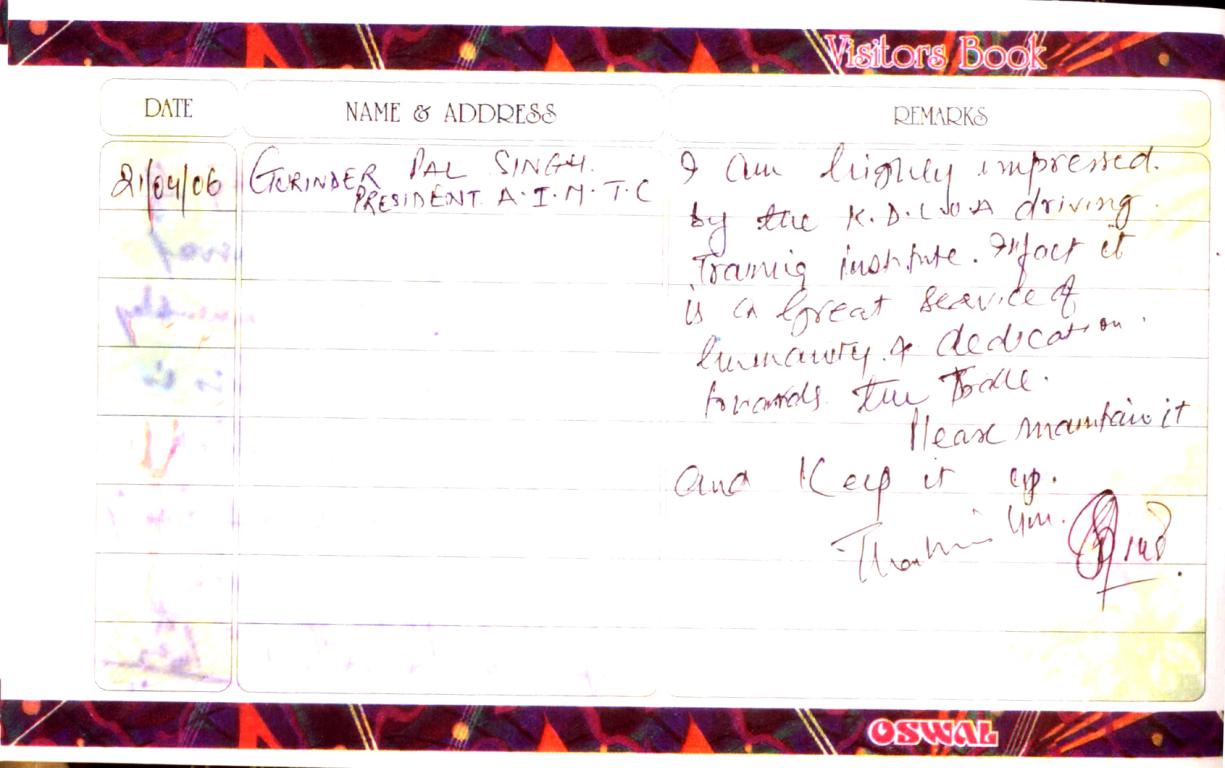 Visitors Book
DATE
NAME & ADDRESS
REMARKS
21/04/06
GURINDER PAL SINGH.
PRESIDENT A.I.M.T.C
I am highly impressed.
by the K.D.L.O.A driving.
Traning institute. Infact it
is a great service of
humanity & dedication.
towards the Trade.
Please maintain it
and Keep it up.
Thanking You.
OSWAL